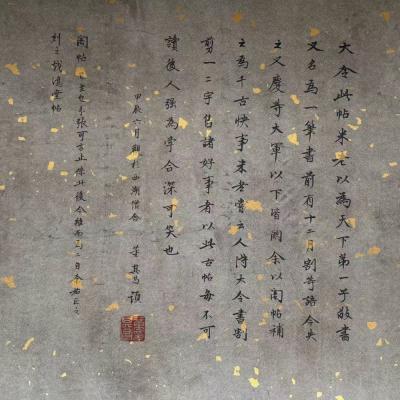 大令此帖米元以為天下第一子敬書
又名為一筆書前有十二月割等語今失
之又慶等大軍以下皆闕余以閣帖補
之為千古快事米老嘗云人得大令書割
剪一二字售諸好事者以此古帖每不可
讀後人強為牽合深可笑也
甲辰六月觀於西湖僧舍 董其昌題
閣帖
刻之戲鴻堂帖